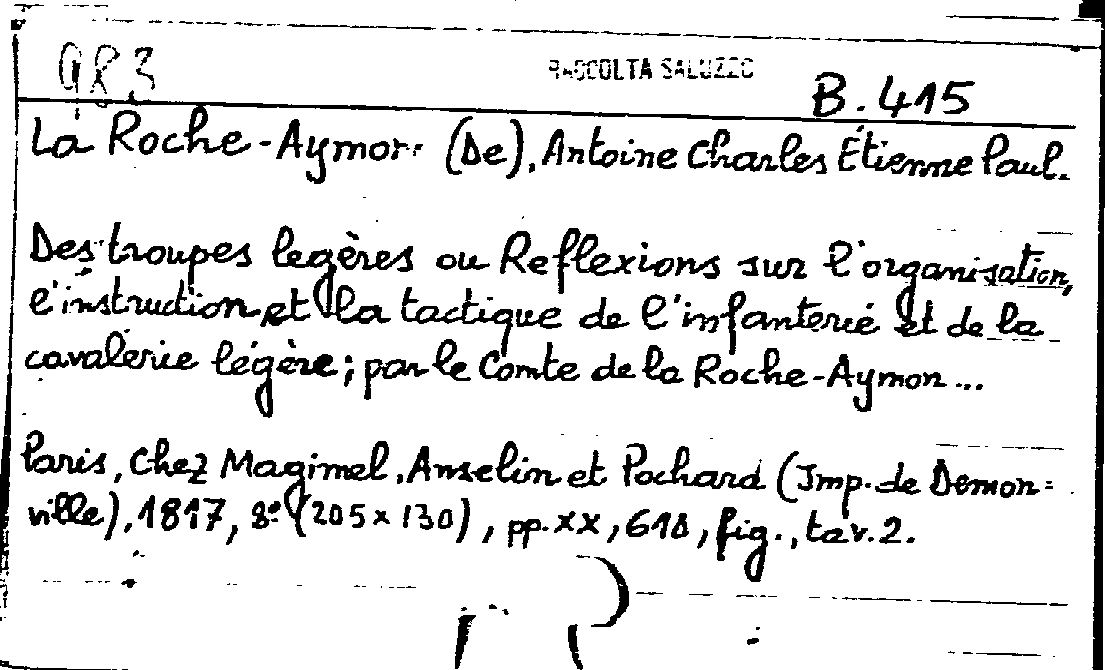 983
RACCOLTA SALUZZO
B.415
La Roche-Aymon (De), Antoine Charles Étienne Paul.
Des troupes legères ou Reflexions sur l'organisation,
l'instruction et la tactique de l'infanterie et de la
cavalerie légère; par le Comte de la Roche-Aymon...
Paris, Chez Magimel, Anselin et Pochard (Imp. de Demon=
ville), 1817, 8º (205x130), pp. XX, 618, fig., tav. 2.